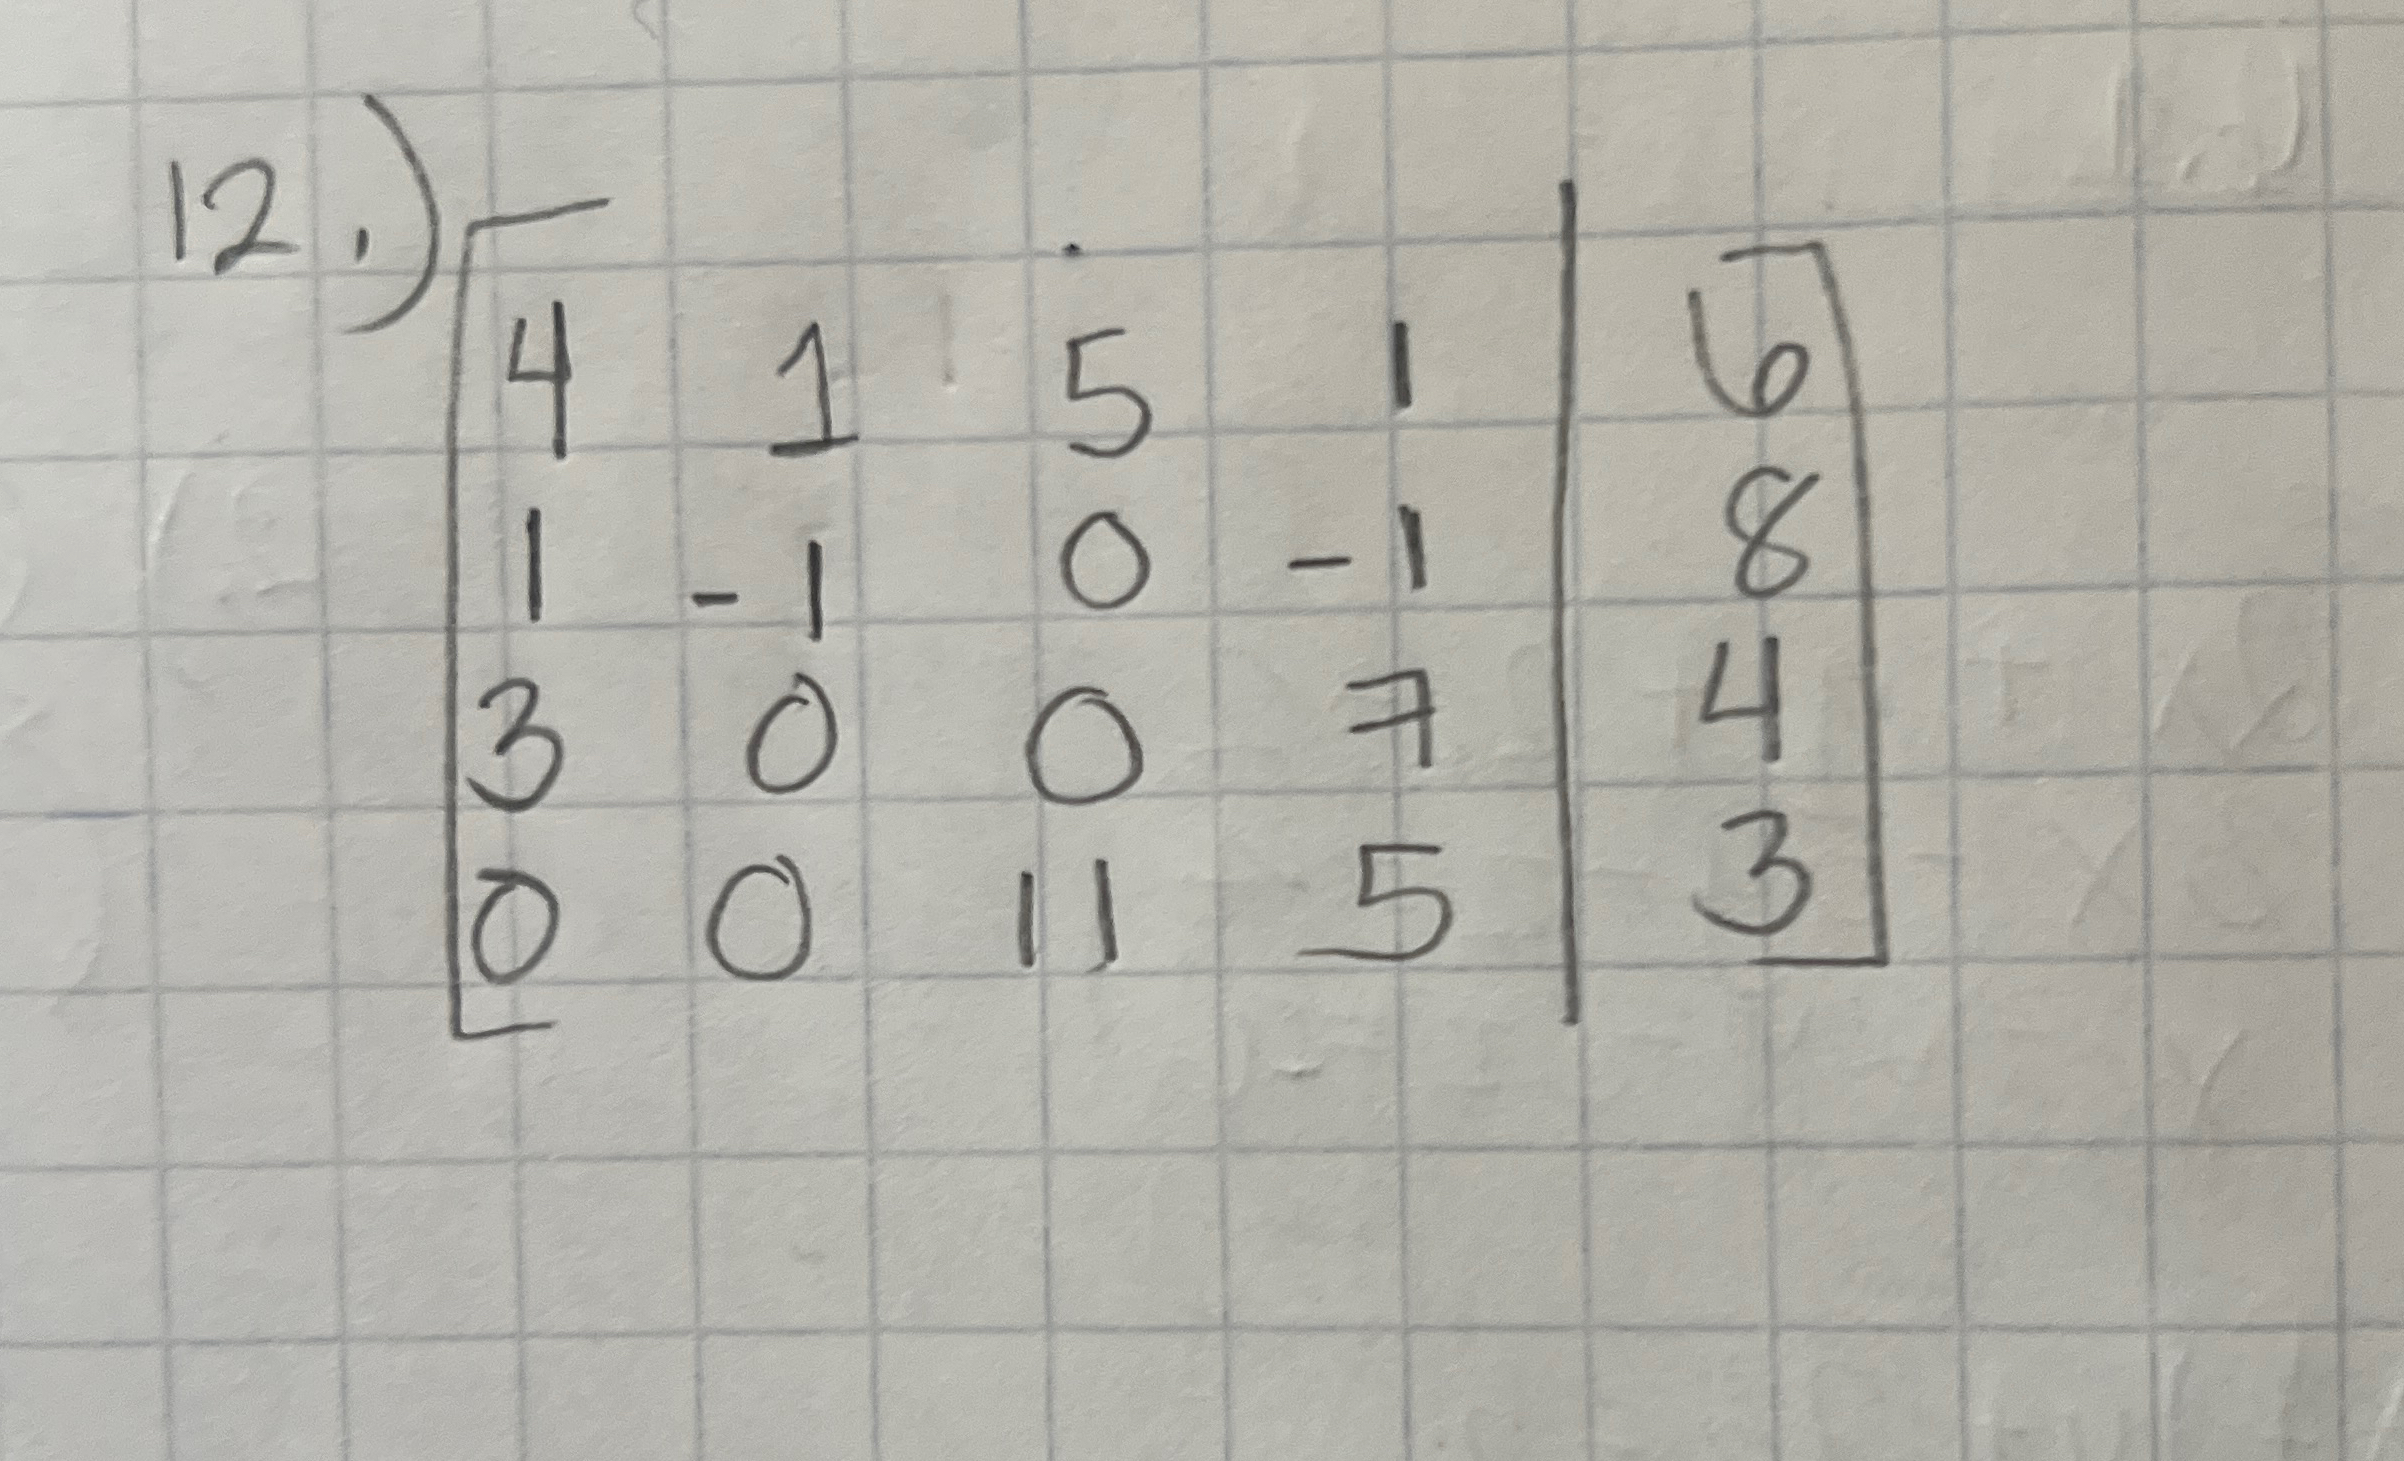 12.)
4 1 5 1 | 6
1 -1 0 -1 | 8
3 0 0 7 | 4
0 0 11 5 | 3